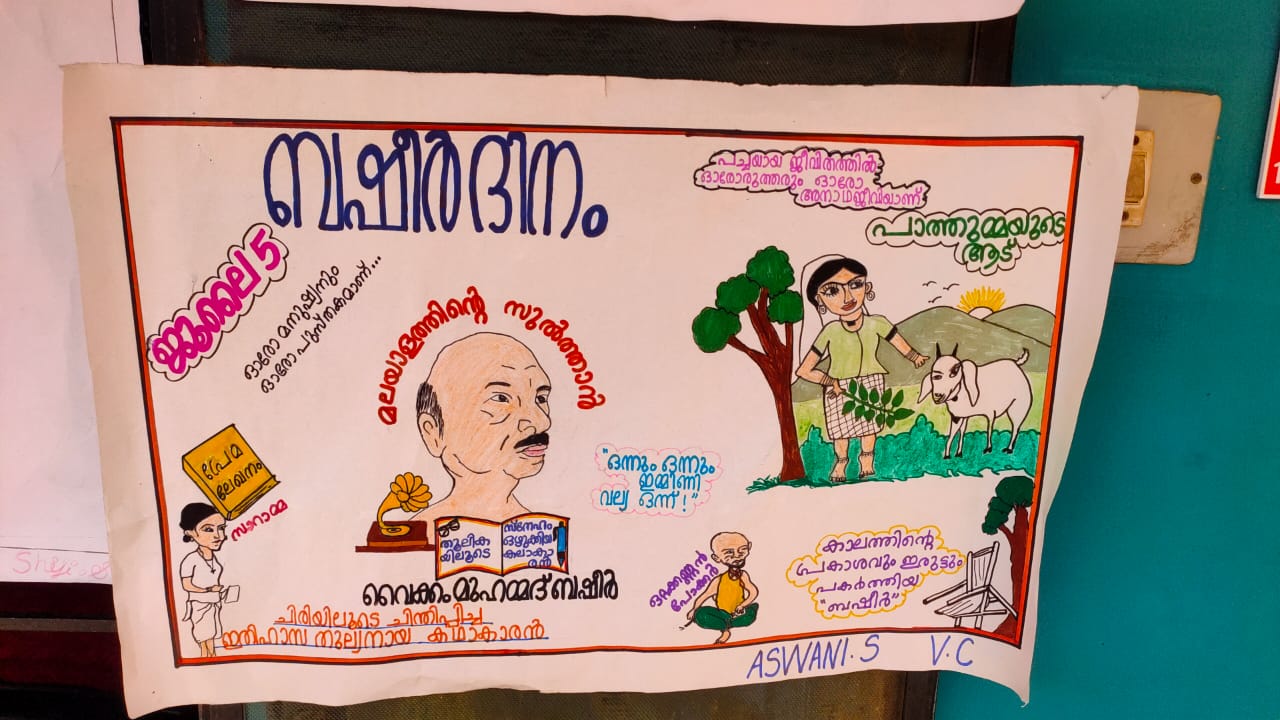 ബഷീർ ദിനം
ജൂലൈ 5
ഓരോ മനുഷ്യനും
ഓരോ പുസ്തകമാണ്...
മലയാളത്തിന്റെ സുൽത്താൻ
പച്ചയായ ജീവിതത്തിൽ
ഓരോരുത്തരും ഓരോ
അനാഥജീവിയാണ്
പാത്തുമ്മയുടെ
ആട്
പ്രേമ
ലേഖനം
സാറാമ്മ
"ഒന്നും ഒന്നും
ഇമ്മിണി
വല്യ ഒന്ന് !"
തൂലിക
യിലൂടെ
സ്നേഹം
ഒഴുക്കിയ
കലാകാ
രൻ
വൈക്കം മുഹമ്മദ് ബഷീർ
ചിരിയിലൂടെ ചിന്തിപ്പിച്ച
ഇതിഹാസ തുല്യനായ കഥാകാരൻ
ഒറ്റക്കണ്ണൻ
പോക്കർ
കാലത്തിന്റെ
പ്രകാശവും ഇരുട്ടും
പകർത്തിയ
"ബഷീർ"
ASWANI.S V.C